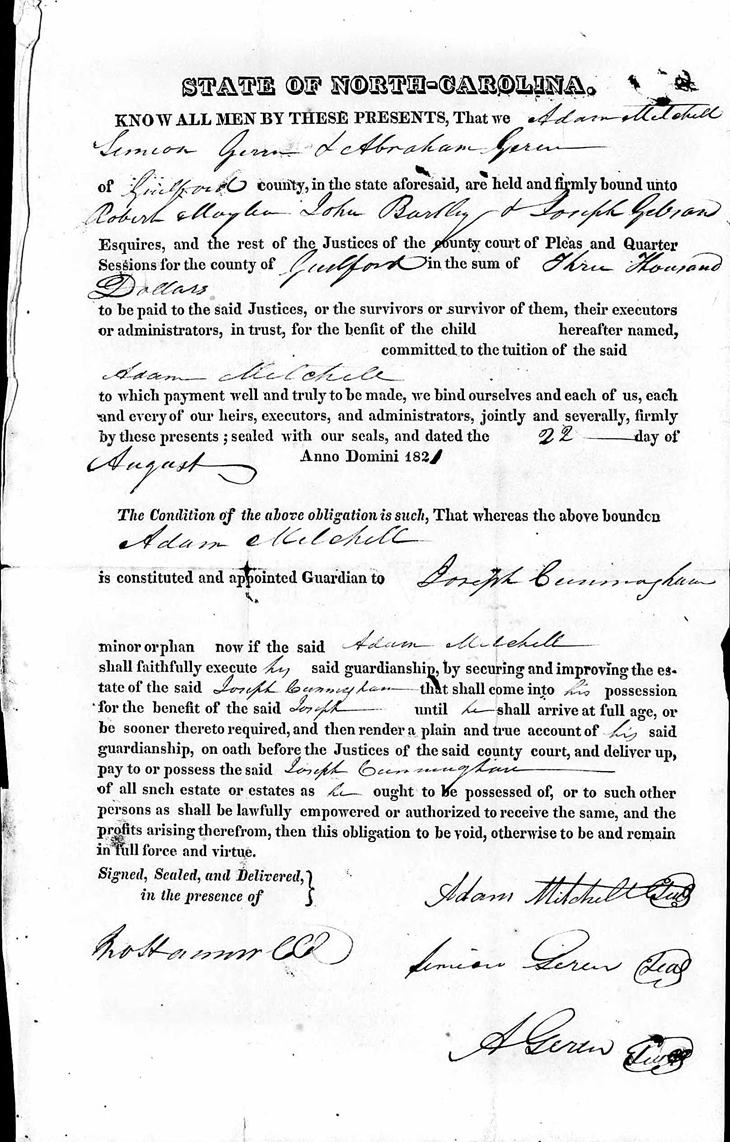 STATE OF NORTH-CAROLINA.
KNOW ALL MEN BY THESE PRESENTS, That we Adam Mitchell
Simeon Geren & Abraham Geren
of Guilford county, in the state aforesaid, are held and firmly bound unto
Robert John Bartley & Joseph Gibson
Esquires, and the rest of the Justices of the county court of Pleas and Quarter
Sessions for the county of Guilford in the sum of Three Thousand
Dollars
to be paid to the said Justices, or the survivors or survivor of them, their executors
or administrators, in trust, for the benfit of the child hereafter named,
committed to the tuition of the said
Adam Mitchell
to which payment well and truly to be made, we bind ourselves and each of us, each
and every of our heirs, executors, and administrators, jointly and severally, firmly
by these presents ; sealed with our seals, and dated the 22 day of
August Anno Domini 1821
The Condition of the above obligation is such, That whereas the above bounden
Adam Mitchell
is constituted and appointed Guardian to Joseph Cunningham
minor orphan now if the said Adam Mitchell
shall faithfully execute his said guardianship, by securing and improving the es-
tate of the said Joseph Cunningham that shall come into his possession
for the benefit of the said Joseph until he shall arrive at full age, or
be sooner thereto required, and then render a plain and true account of his said
guardianship, on oath before the Justices of the said county court, and deliver up,
pay to or possess the said Joseph Cunningham
of all snch estate or estates as he ought to be possessed of, or to such other
persons as shall be lawfully empowered or authorized to receive the same, and the
profits arising therefrom, then this obligation to be void, otherwise to be and remain
in full force and virtue.
Signed, Sealed, and Delivered,
in the presence of
Adam Mitchell Seal
Simeon Geren Seal
A Geren Seal